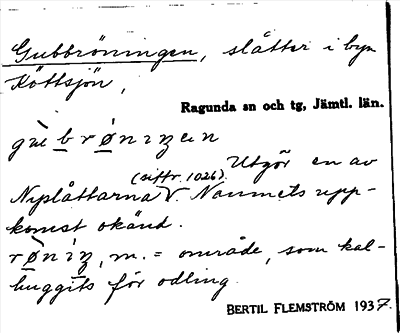 Gubbröningen, slåtter i byn
Köttsjön,
Ragunda sn och tg, Jämtl. län.
gùb̲r ǿ̲n ɪ ŋ en
Utgör en av
(siffr. 1026).
Nyslåttarna V. Namnets upp-
komst okänd.
r ø̲̀n ɪ́ ŋ, m. = område, som kal-
huggits för odling.
BERTIL FLEMSTRÖM 1937.